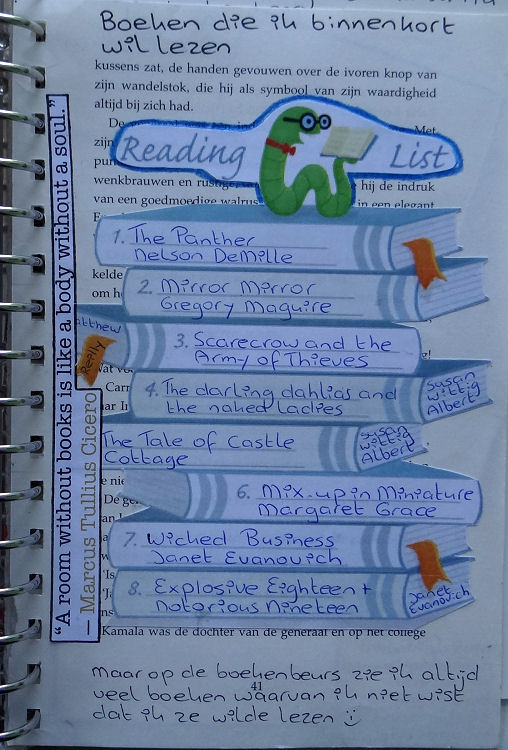 Boeken die ik binnenkort
wil lezen
kussens zat, de handen gevouwen over de ivoren knop van
zijn wandelstok, die hij als symbool van zijn waardigheid
altijd bij zich had.
De
Met
zijn
Reading List
wenkbrauwen en
hij de indruk
van een goedmoedige walrus
in een elegant
1. The Panther
Nelson DeMille
kelde
om h
2. Mirror Mirror
Gregory Maguire
Matthew
Reilly
3. Scarecrow and the
Army of Thieves
4. The darling dahlias and
the naked ladies
Susan
Wittig
Albert
The Tale of Castle
Cottage
Susan
Wittig
Albert
6. Mix-up in Miniature
Margaret Grace
7. Wicked Business
Janet Evanovich
8. Explosive Eighteen +
Notorious Nineteen
Janet
Evanovich
Kamala was de dochter van de generaal en op het college
41
maar op de boekenbeurs zie ik altijd
veel boeken waarvan ik niet wist
dat ik ze wilde lezen
"A room without books is like a body without a soul."
— Marcus Tullius Cicero